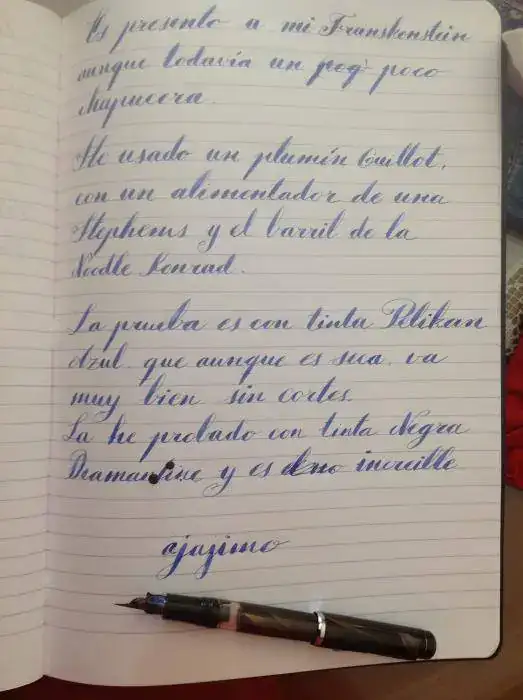 Os presento a mi Franskenstein
aunque todavía un poq poco
chapucera.
He usado un plumín Guillot,
con un alimentador de una
Stephens y el barril de la
Noodle Konrad.
La prueba es con tinta Pelikan
Azul, que aunque es seca, va
muy bien sin cortes.
La he probado con tinta Negra
Diamantine y es increible
ajazimo